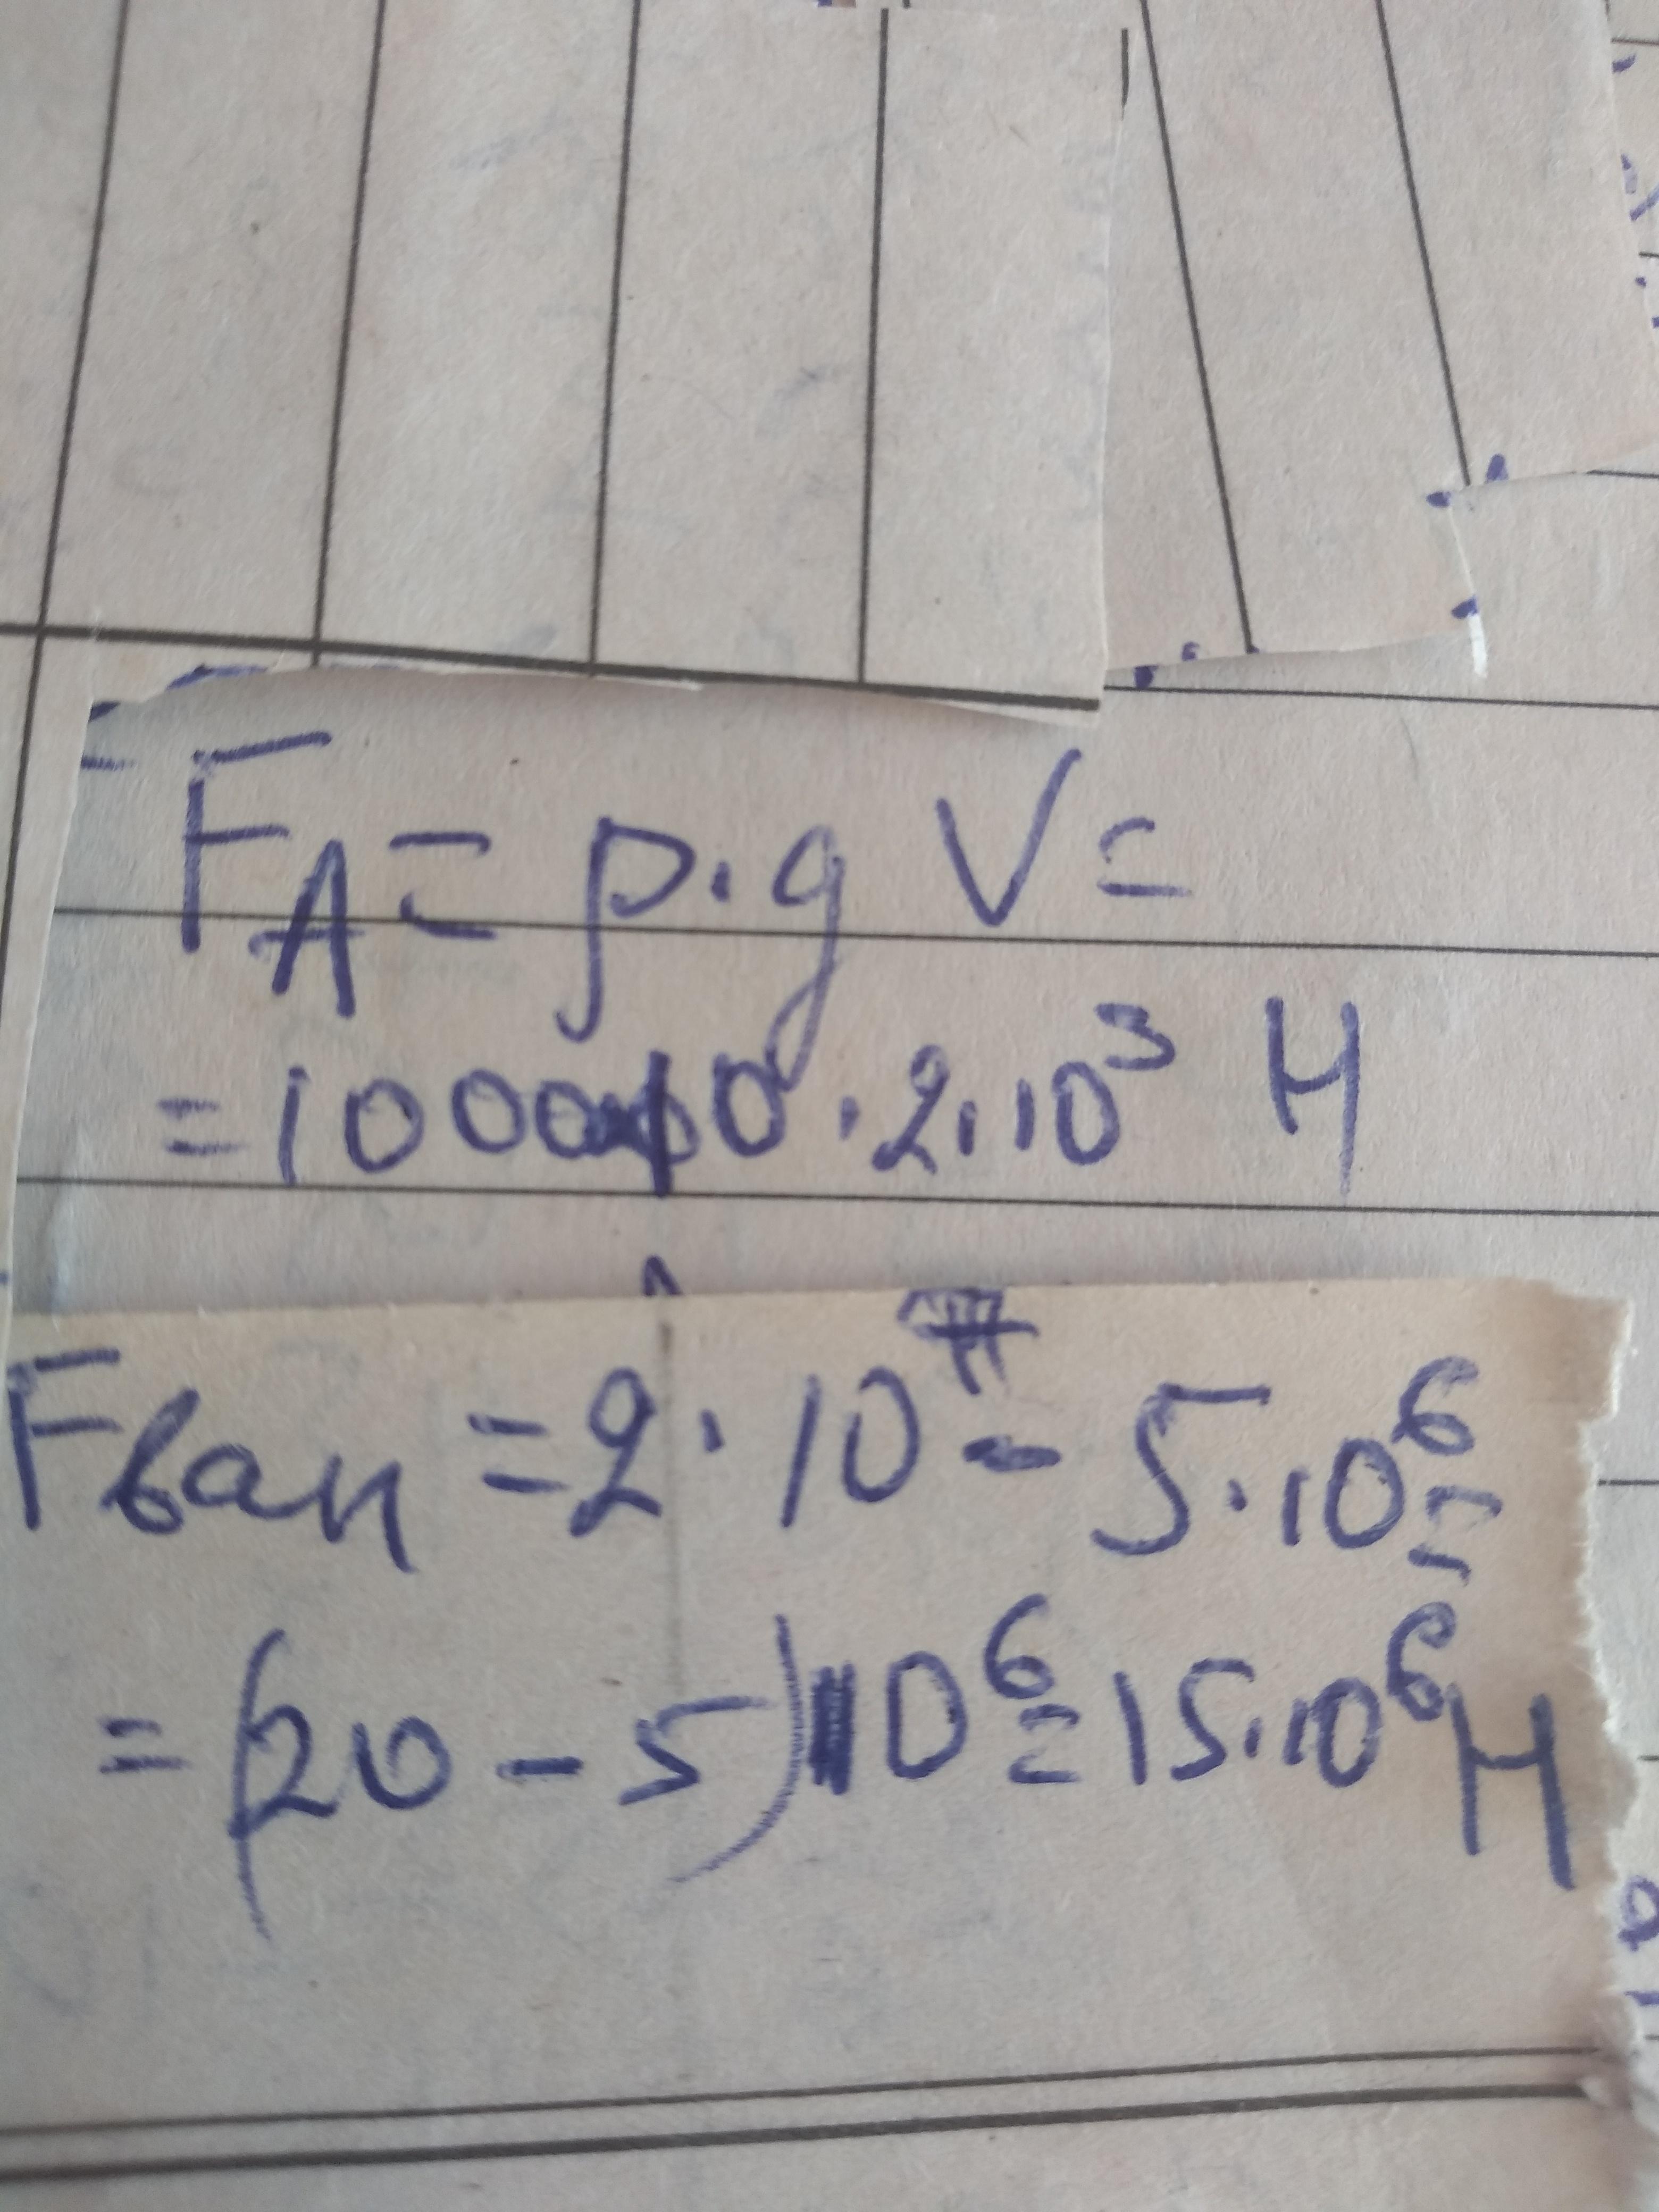 FA = ρ·g V =
= 1000·10·2·10³ Н
Fвап = 2·10⁷ - 5·10⁶ =
= (20 - 5)10⁶ = 15·10⁶ Н